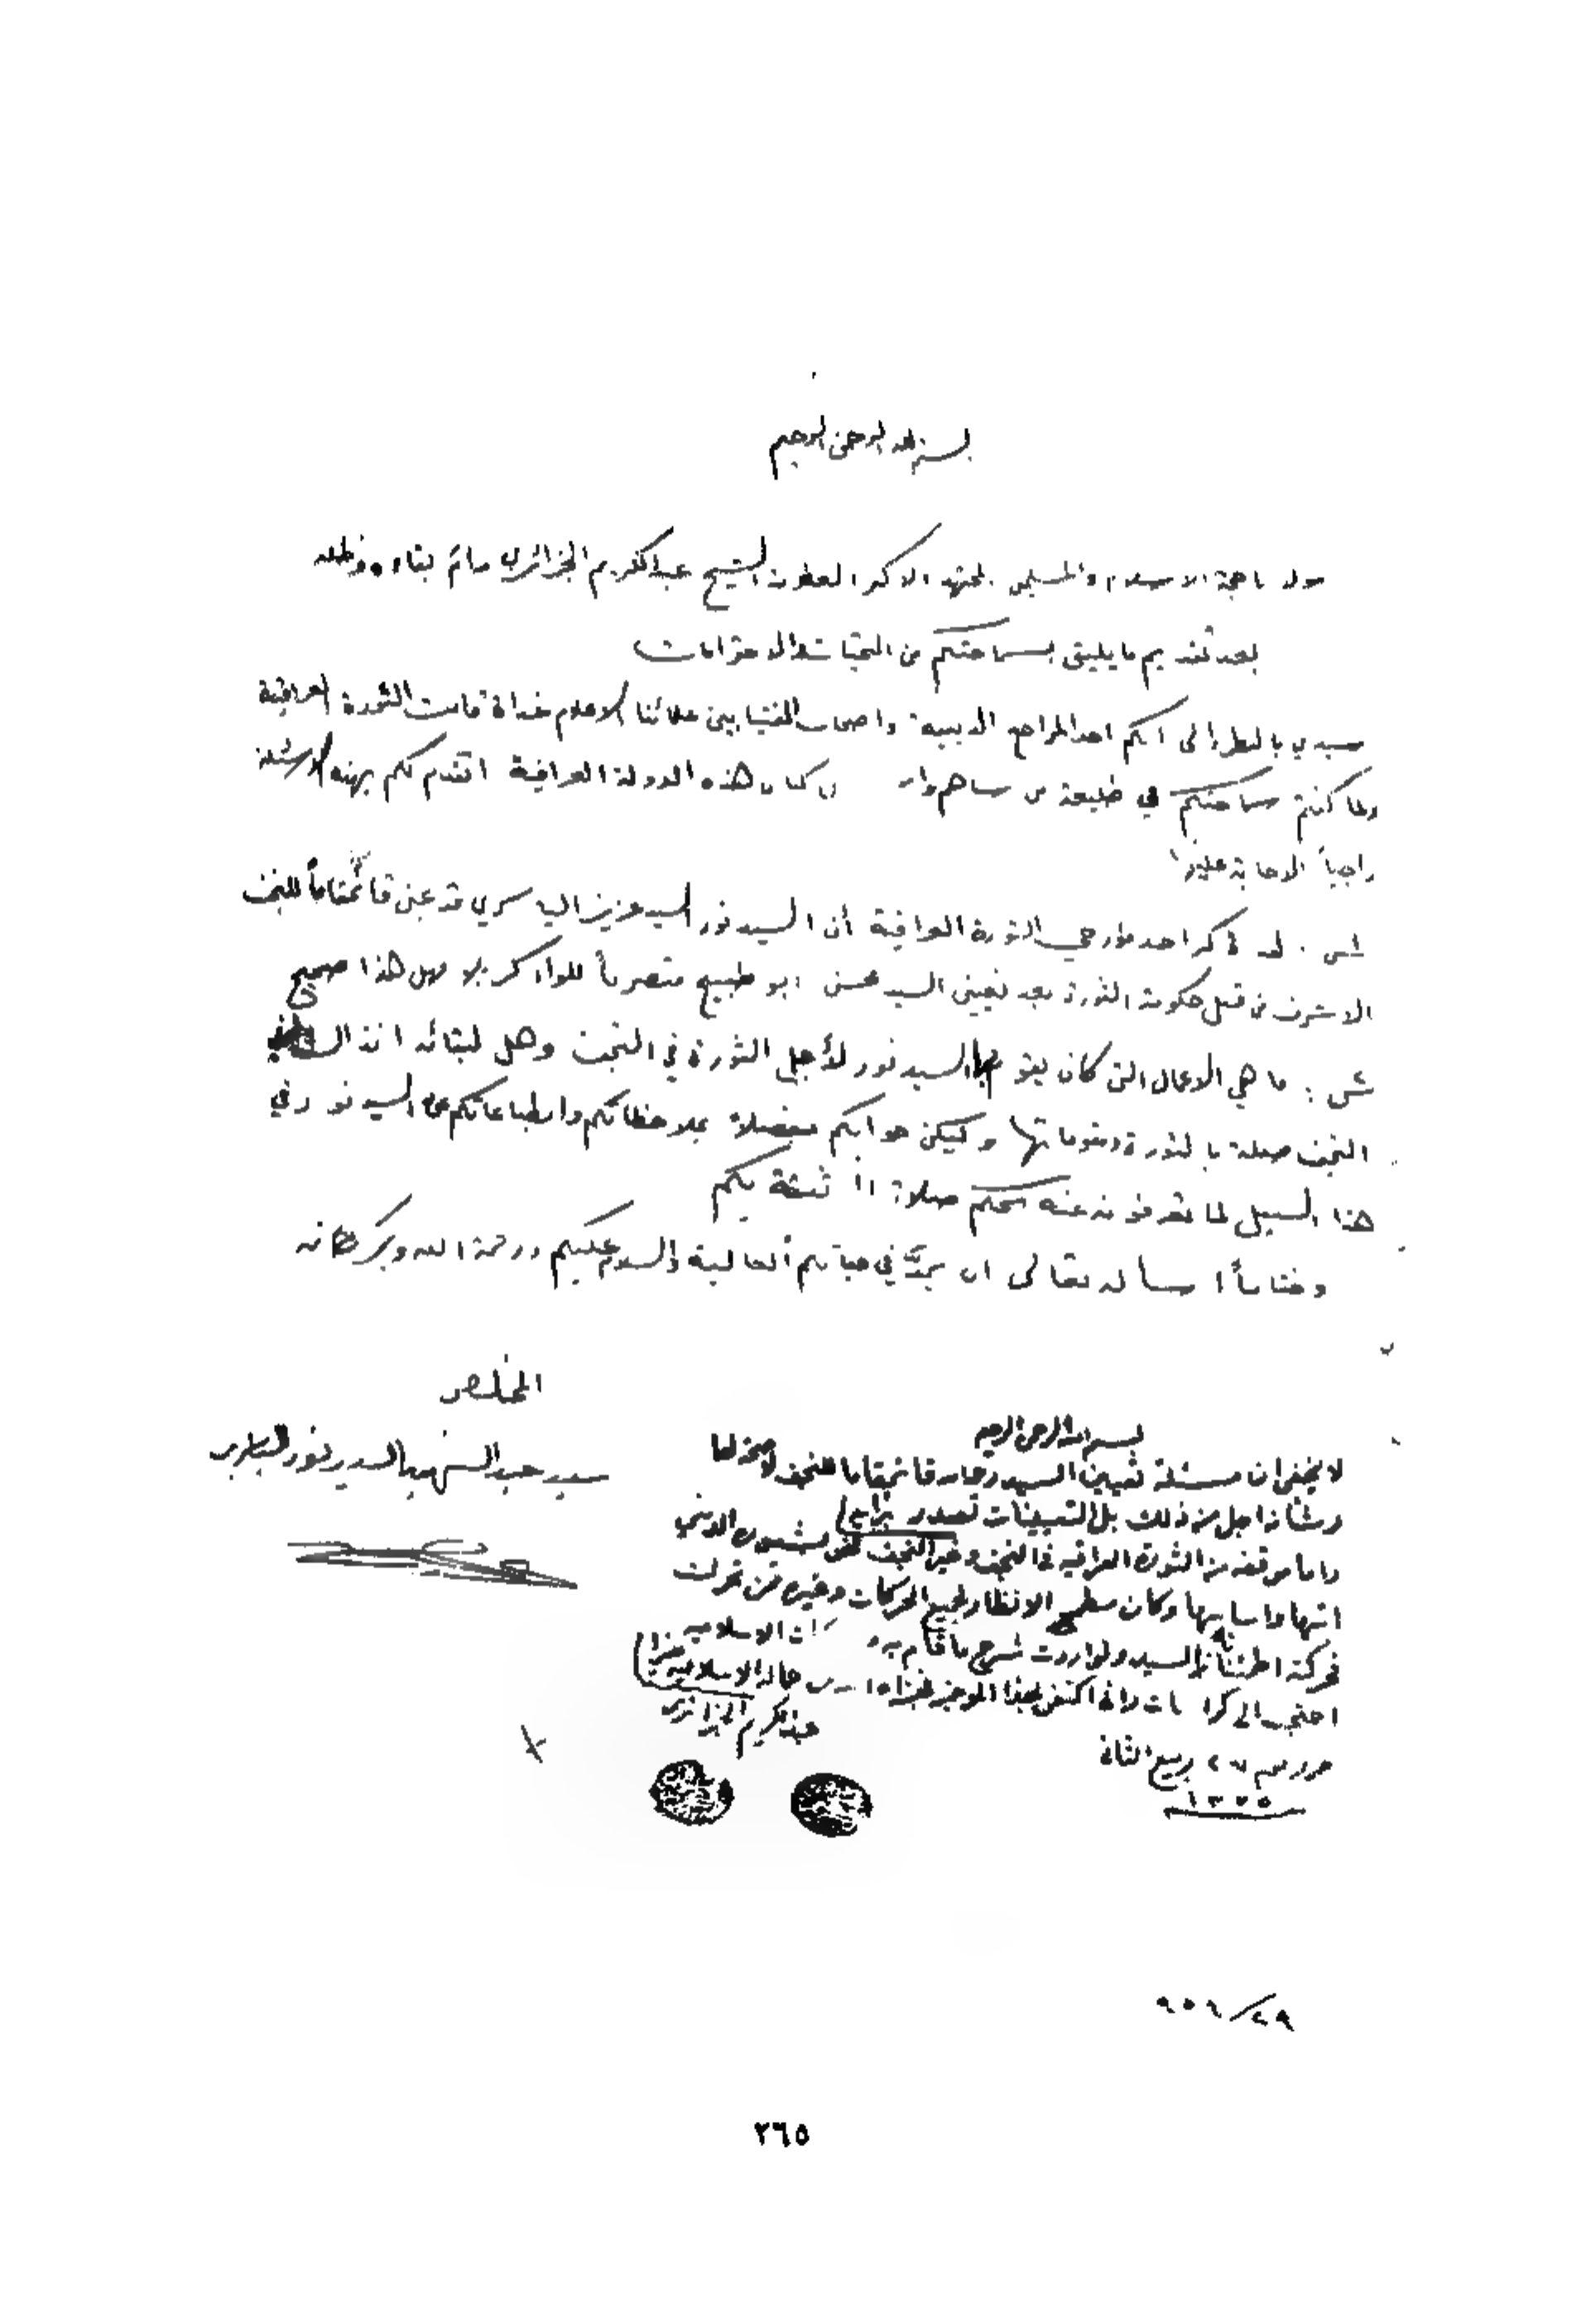 بسم الله الرحمن الرحيم
مولانا حجة الاسلام والمسلمين المجتهد الاكبر الشيخ عبدالكريم الجزائري دام بقاءه وظله
بعد تقديم ما يليق بسماحتكم من التحيات والاحترامات
سيدي بالنظر الى انكم احد المراجع الدينية واصحاب الفتيا بين علمائنا الاعلام غداة قامت الثورة العراقية
ولما كنتم سماحتكم في طليعة من ساهموا كيان هذه الدولة العراقية اتقدم لكم بهذه الاسئلة
راجياً الاجابة عليها
س : لقد ذكر احد مؤرخي الثورة العراقية أن السيد نور السيد عزيز الياسري قد عين قائممقاماً للنجف
الاشرف من قبل حكومة الثورة بعد تعيين السيد محسن ابو طبيخ متصرفاً للواء كربلا فهل هذا صحيح
س : ما هي الاعمال التي كان يقوم بها السيد نور لأجل الثورة في النجف وهل لبقائه انذاك في
النجف صلة بالثورة ومقوماتها وليكن جوابكم مفصلا بملاحظاتكم وانطباعاتكم عن السيد نور في
هذا السبيل لما تعرفونه عنه ثقة بكم
وختاماً اسأله تعالى ان يمد في حياتكم الغالية والسلام عليكم ورحمة الله وبركاته
المخلص
سيد عبد الشهيد السيد نور الياسري
بسم الله الرحمن الرحيم
لا يخفى ان مسئلة تعيين السيد قائمقاما للنجف لا صحة لها
وشأنه اجل من ذلك بل التعيينات تصدر برأيه
واما موقفه من الثورة العراقيه في النجف وغير النجف فهو الديني
وكان مطمح الانظار لجميع الحركات
السيد ولو اردت شرح ما قام به الاسلاميه
احتجت الى واني اكتفي بهذا الموجز فجزاه الله عن الاسلاميه خيرا
عبدالكريم الجزائري
حرر يوم ٢٧ ربيع الثاني
١٣٧٥
٢٩/٩٥٦
٢٦٥